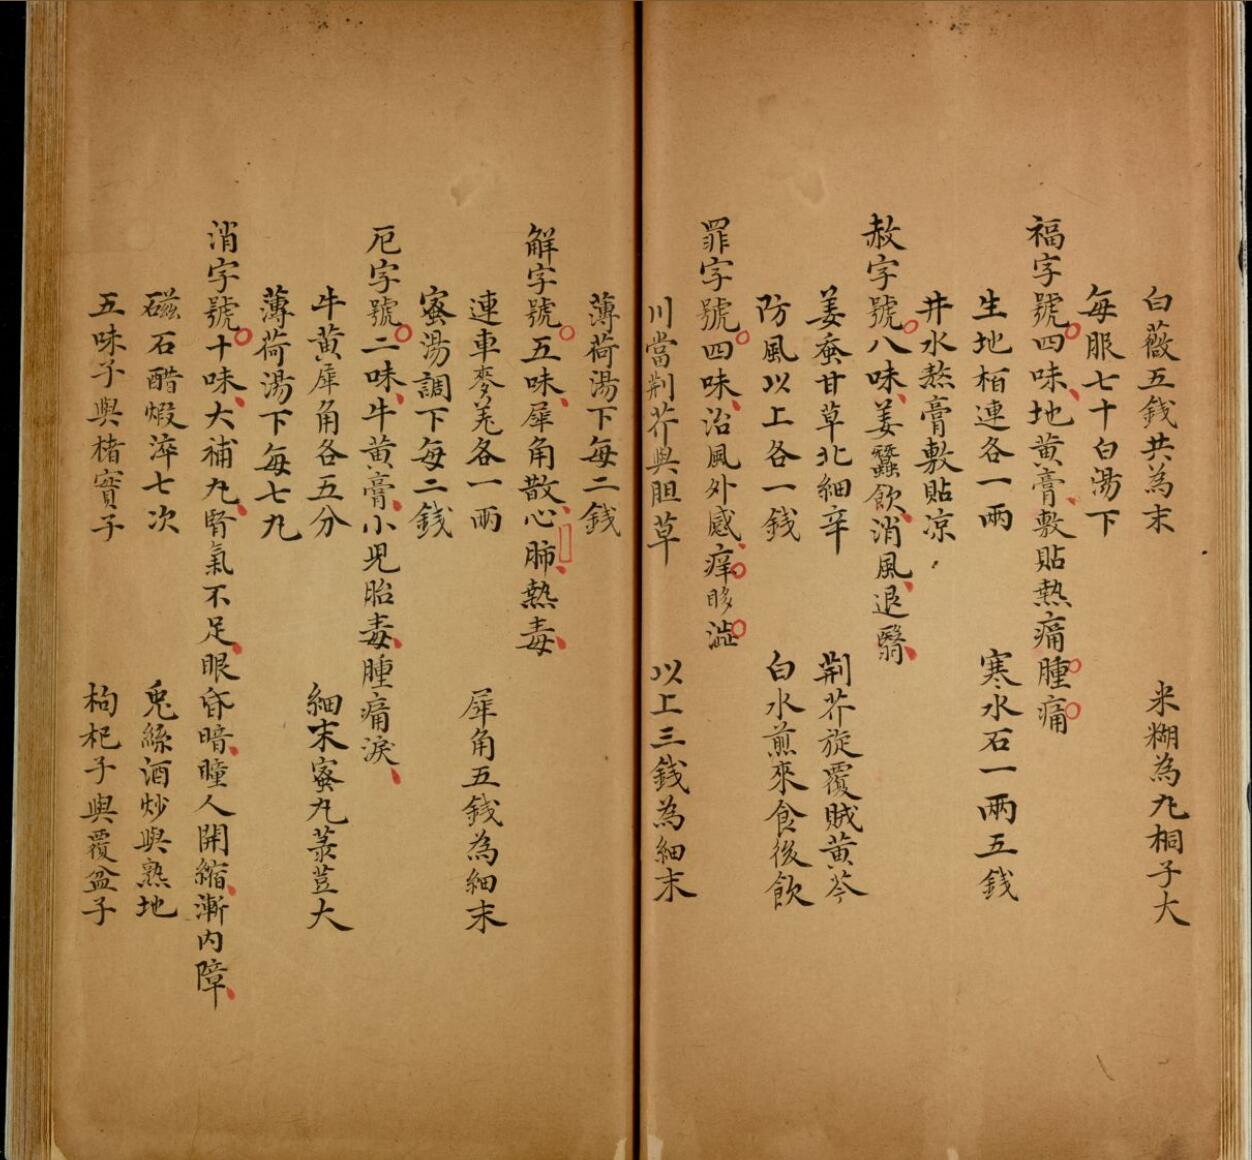 白薇五錢共為末　米糊為九桐子大
每服七十白湯下
福字號四味地黃膏敷貼熱痛腫痛
生地栢連各一兩　寒水石一兩五錢
井水熬膏敷貼凉
赦字號八味姜蠶飲消風退翳
姜蚕甘草北細辛　荆芥旋覆賊黃芩
防風以上各一錢　白水煎來食後飲
罪字號四味沿風外感痒眵澁
川當荆芥與胆草　以上三錢為細末
薄荷湯下每二錢
解字號五味犀角散心肺熱毒
連車麥羗各一兩　犀角五錢為細末
蜜湯調下每二錢
厄字號二味牛黃膏小児胎毒腫痛淚
牛黃犀角各五分　細末蜜九菉荳大
薄荷湯下每七九
消字號十味大補九腎氣不足眼昏暗瞳人開縮漸内障
磁石醋煅淬七次　兎絲酒炒與熟地
五味子與楮實子　枸杞子與覆盆子